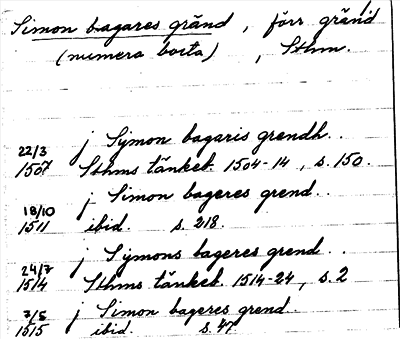 Simon bagares gränd, förr gränd
(numera borta), Sthm.
j Symon bagaris grendh..
22/3
1507 Sthms tänkeb. 1504-14, s. 150.
j Simon bageres grend..
18/10
1511 ibid. s. 218.
j Symons bageres grend..
24/7
1514 Sthms tänkeb. 1514-24, s. 2
j Simon bageres grend.
7/5
1515 ibid. s. 47